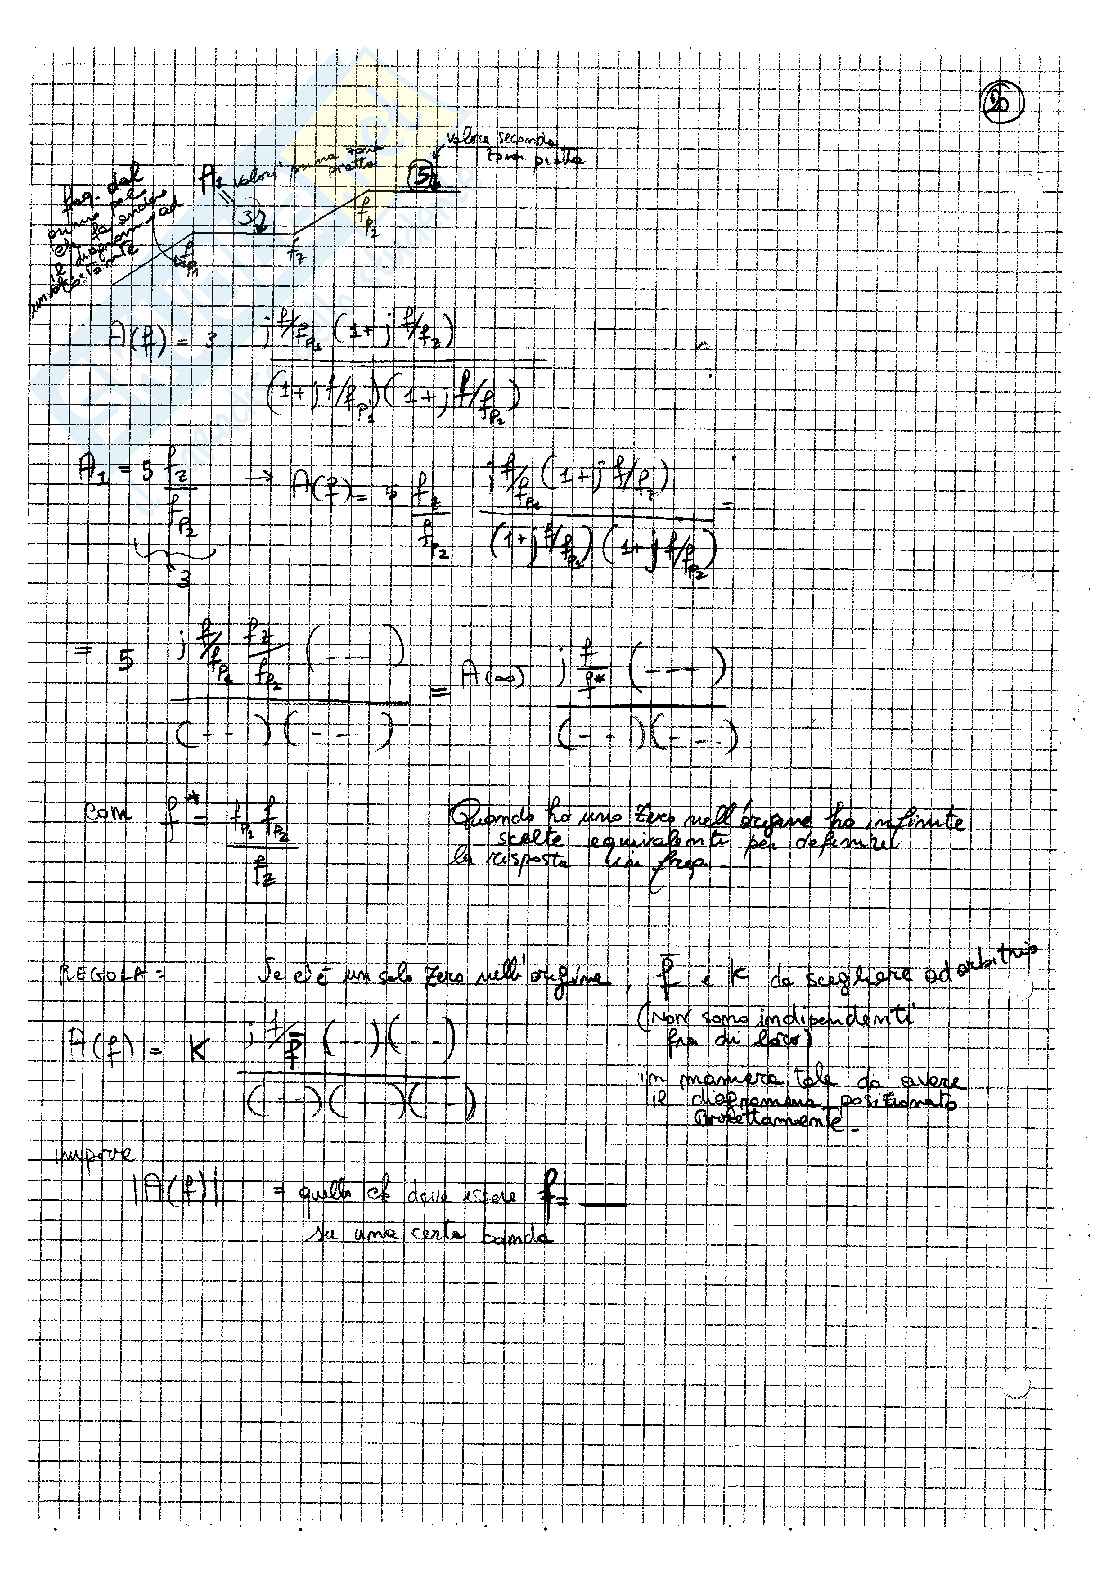 20
valore seconda
zona piatta
A₁ valori prima zona
piatta
5
freq. del
primo polo
che fa andare
il diagramma ad
costante
3
fp₁
fz
fp₂
A(f) = 3 j f/fp₁ (1+j f/fz) / (1+j f/fp₁)(1+j f/fp₂)
A₁ = 5 fz/fp₂ → A(f) = 5 fz/fp₂ j f/fp₁ (1+j f/fz) / (1+j f/fp₁)(1+j f/fp₂) =
3
= 5 j f/fp₁ fz/fp₂ (---) / (---)(---) = A(∞) j f/f* (---) / (---)(---)
com f* = fp₁ fp₂ / fz
Quando ho uno zero nell'origine ho infinite
scelte equivalenti per definire
la risposta in freq.
REGOLA: Se c'è un solo zero nell'origine, f̄ e K da scegliere ad arbitrio
(Non sono indipendenti
fra di loro)
A(f) = K j f/f̄ (---)(---) / (---)(---)(---)
in maniera tale da avere
il diagramma posizionato
correttamente.
impove
|A(f)| = quello ch deve essere f = ___
su una certa banda